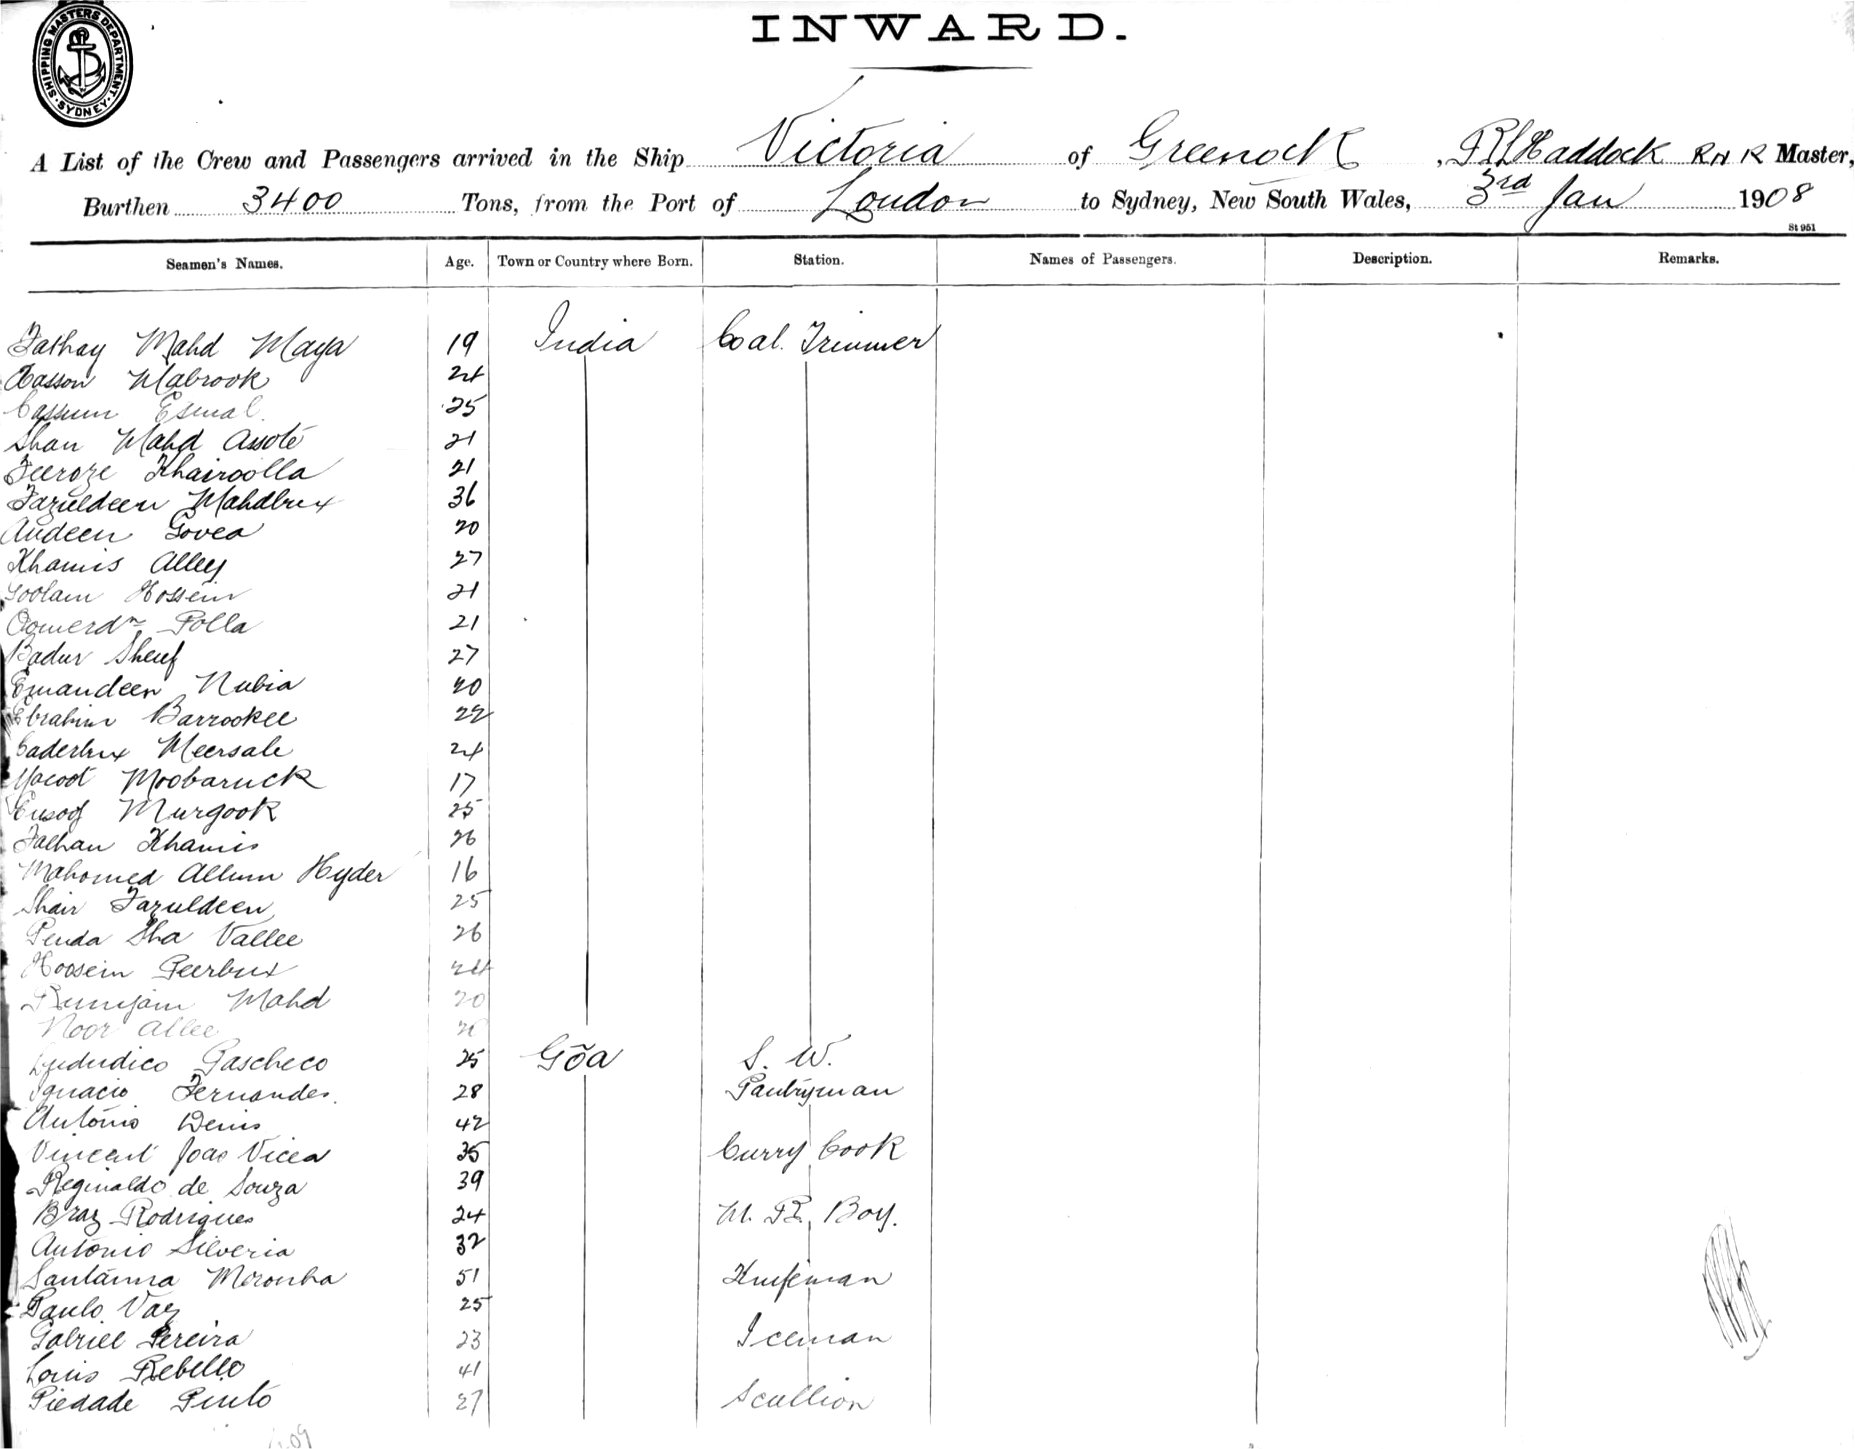 SHIPPING MASTERS DEPARTMENT. SYDNEY.
INWARD.
A List of the Crew and Passengers arrived in the Ship Victoria of Greenock, R L Haddock RNR Master,
Burthen 3400 Tons, from the Port of London to Sydney, New South Wales, 3rd Jan 1908
St 951
Seamen's Names. Age. Town or Country where Born. Station. Names of Passengers. Description. Remarks.
Fathay Mahd Maya 19 India Coal Trimmer
Hasson Mabrook 24
Cassum Esmal 25
Shan Mahd Assote 21
Feeroze Khairoolla 21
Fazuldeen Mahdbux 36
Audeen Govea 20
Khamis Alley 27
Goolam Hossein 21
Oomerdn Polla 21
Badur Sheuf 27
Emamdeen Nubia 40
Ebrahim Barrookee 22
Caderbux Meersale 24
Yacoot Moobaruck 17
Eusoof Murgook 25
Falhan Khamis 26
Mahomed Allum Hyder 16
Shair Fazuldeen 25
Penda Sha Vallee 26
Hoosein Peerbux 24
Rumjam Mahd 20
Noor Allee
Lududico Pascheco 25 Gōa S. W.
Ignacio Fernandes. 28 Pantryman
Antonio Denis 42
Vincent Joao Vicea 35 Curry Cook
Reginaldo de Souza 39
Braz Rodrigues 24 Boy.
Antonio Silveria 32
Santanna Moronha 51 Knifeman
Paulo Vaz 25
Gabriel Pereira 23 Iceman
Louis Rebello 41
Piedade Pinto 27 Scullion